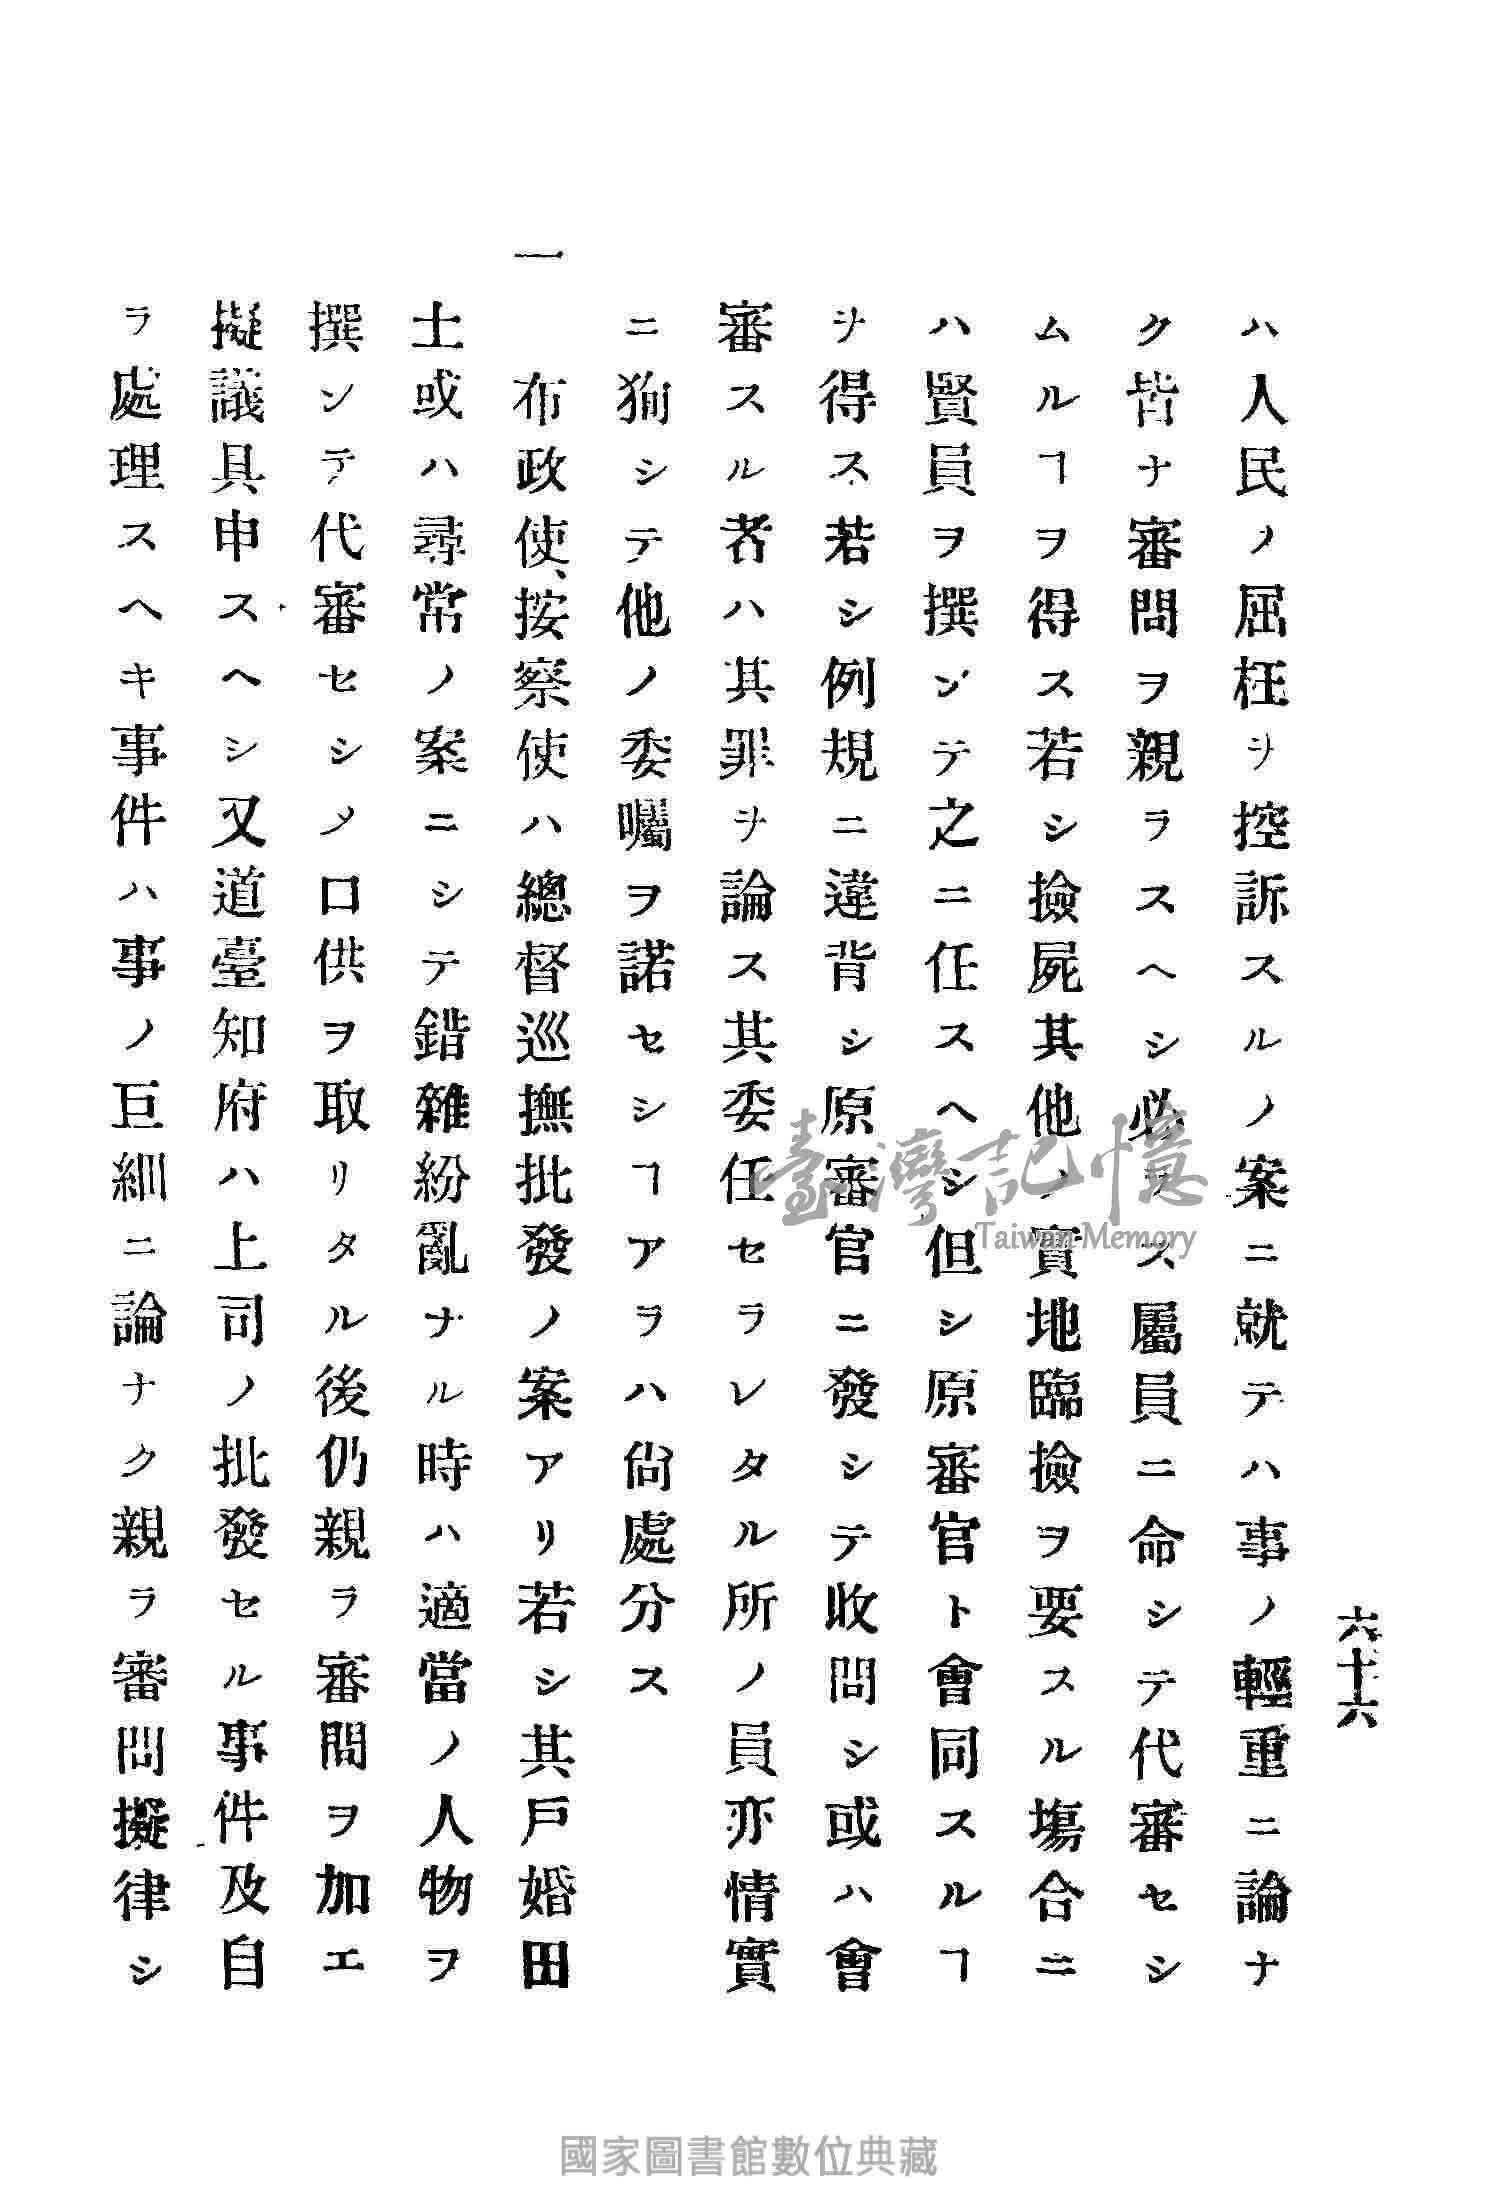 六十六
ハ人民ノ屈枉ヲ控訴スルノ案ニ就テハ事ノ輕重ニ論ナ
ク皆ナ審問ヲ親ラスヘシ必ラス屬員ニ命シテ代審セシ
ムルヿヲ得ス若シ撿屍其他ノ實地臨撿ヲ要スル塲合ニ
ハ賢員ヲ撰ンテ之ニ任スヘシ但シ原審官ト會同スルヿ
ヲ得ス若シ例規ニ違背シ原審官ニ發シテ收問シ或ハ會
審スル者ハ其罪ヲ論ス其委任セラレタル所ノ員亦情實
ニ狥シテ他ノ委囑ヲ諾セシヿアラハ尙處分ス
一 布政使、按察使ハ總督巡撫批發ノ案アリ若シ其戶婚田
土或ハ尋常ノ案ニシテ錯雜紛亂ナル時ハ適當ノ人物ヲ
撰ンテ代審セシメ口供ヲ取リタル後仍親ラ審問ヲ加エ
擬議具申スヘシ又道臺知府ハ上司ノ批發セル事件及自
ラ處理スヘキ事件ハ事ノ巨細ニ論ナク親ラ審問擬律シ
臺灣記憶
Taiwan Memory
國家圖書館數位典藏